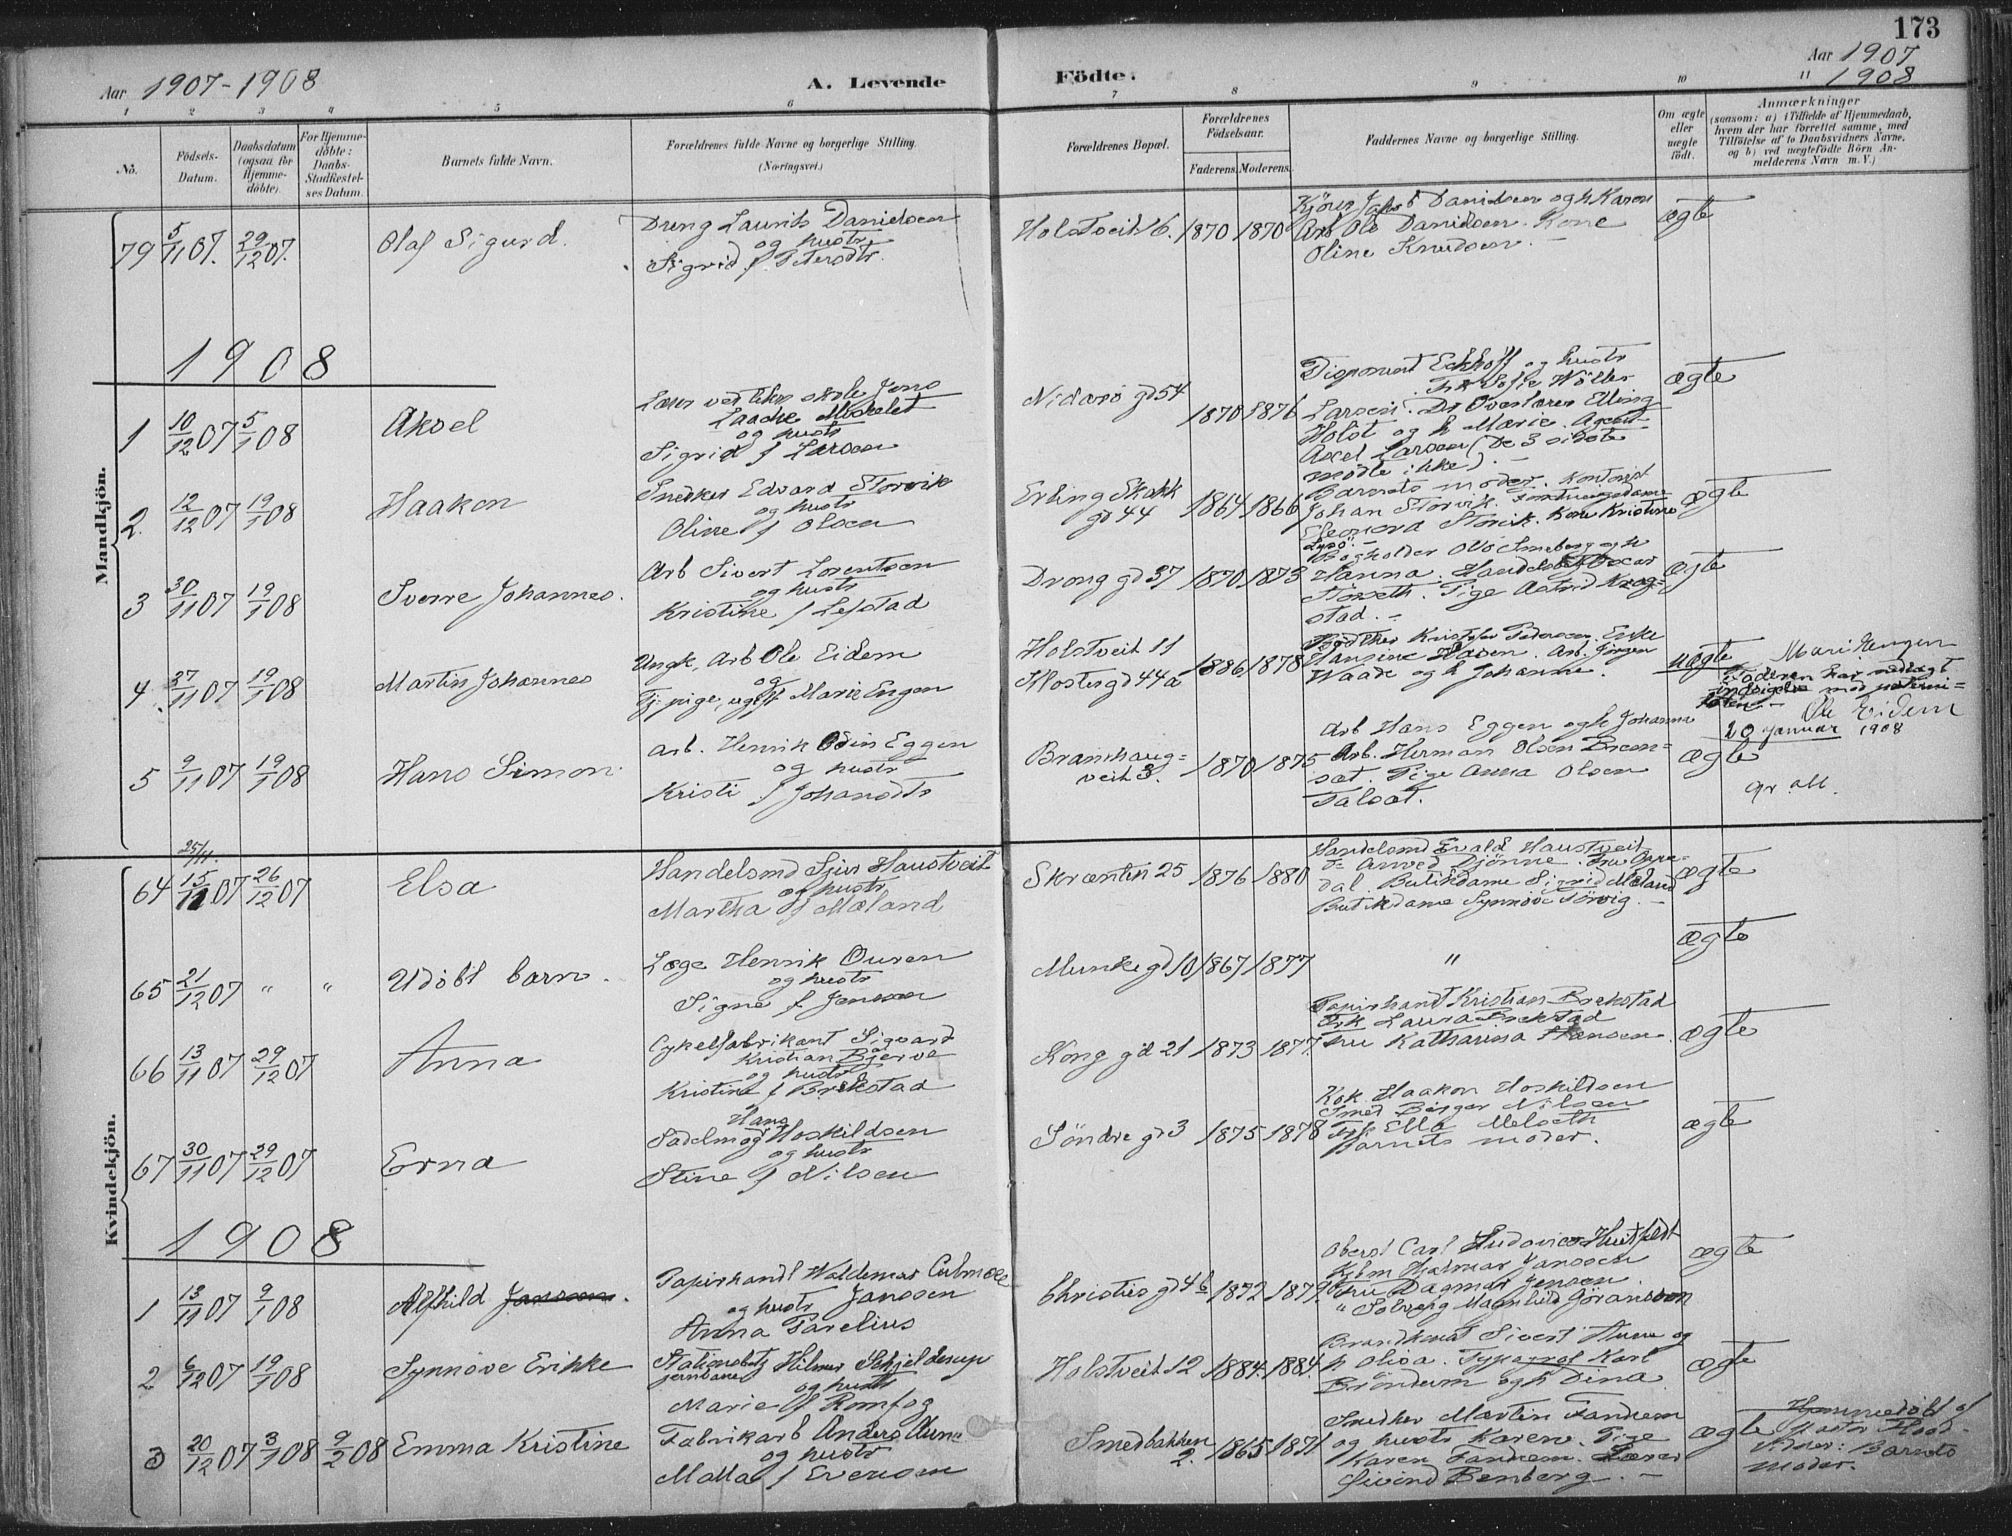 173
Aar 1907-1908
A. Levende Födte.
Aar 1907
1908
1 2 3 4 5 6 7 8 9 10 11
No.
Födsels-Datum.
Daabsdatum (ogsaa for Hjemme-döbte).
For Hjemme-döbte: Daabs-Stadfæstel-ses Datum.
Barnets fulde Navn.
Forældrenes fulde Navne og borgerlige Stilling. (Næringsvei.)
Forældrenes Bopæl.
Forældrenes Födselsaar.
Faderens. Moderens.
Faddernes Navne og borgerlige Stilling.
Om ægte eller uægte födt.
Anmærkninger
(saasom: a) i Tilfælde af Hjemmedaab,
hvem der har forrettet samme, med
Tilföielse af to Daabsvidners Navne,
og b) ved uægtefödte Börn An-
melderens Navn m. V.)
Mandkjön.
79 5/11 07. 29/12 07. Olaf Sigurd.
Dreng Laurits Danielsen
og hustr
Sigrid f Petersdtr.
Holstveit 16. 1870 1870
Kjörer Jakob Danielsen og h Karen
Arb Ole Danielsen. Kone
Oline Knudsen. –
ægte
1908
1 10/12 07 5/1 08 Aksel
Lærer ved tekn skole Jens
Laache Moskelet
og hustr
Sigrid f Larsen
Nidarö gd 54 1870 1876
Disponent Eckhoff og hustr
Frk Sofie Möller
Larsen. Dr Overlærer Elling
Holst og h Marie. Agent
Axel Larsen (De 3 sidste
mödte ikke). –
ægte
2. 12/12 07 19/1 08 Haakon
Snekker Edvard Storvik
og hustr
Oline f Olsen
Erling Skakk gd 44 1864 1866
Barnets moder. Kontorist
Johan Storvik.
Eleonora Storvik. Kone Kristine
Lysö. –
ægte
3 30/11 07 19/1 08 Sverre Johannes.
Arb Sivert Lorentsen
og hustr
Kristine f Lefstad
Drong gd 37 1870 1873
Bogholder Ole Smeberg og h
Hanna. Handelsb Oscar
Störseth. Pige Astrid Krog-
stad. –
ægte
4. 27/11 07 19/1 08 Martin Johannes
Ungk. Arb Ole Eidem
og
Tj. pige, ugift Marie Engen
Holstveit 11
Kloster gd 44a 1886 1878
Kristofer Pedersen. Enke
Hansine Hasen. Arb. Jörgen
Waade og h Johanne.
uægte
Mari Hengen
Faderen har nedlagt
indsigelse mod paterni-
teten. –
Ole Eidem
20 januar 1908
5 9/11 07 19/1 08 Hans Simon.
Arb. Henrik Odin Eggen
og hustr
Kristi f Johansdtr
Branhaug-
veit 3. 1870 1875
Arb Hans Eggen og h Johanna
Arb. Herman Olsen Brem-
sæt. Pige Anna Olsen
Talsæt.
ægte
qr. att.
Kvindekjön.
64 25/11. 15/12 07 26/12 07 Elsa
Handelsmd Sjur Haustveit
og hustr
Martha f Mæland
Skræntin 25 1876 1880
Handelsmd Evald Haustveit
Arnved Djönne. Fru Oppe-
dal. Butikdame Sigrid Mæland
Butikdame Synnöve Törvig. –
ægte
65 21/12 07 " " Udöbt barn.
Læge Henrik Ouren
og hustr
Signe f Jensen
Munke gd 10 1867 1877
"
ægte
66 13/11 07 29/12 07 Anna
Cykelfabrikant Sigvard
Kristian Bjerve
og hustr
Kristine f Brekstad
Kong gd 21 1873 1877.
Papirhandl Kristian Brekstad
Frk Laura Brekstad
Fru Katharina Hansen.
ægte
67 30/11 07 29/12 07 Erna
Hans
Sadelmag Hoskildsen
og hustr
Stine f Nilsen
Söndre gd 3 1875 1878
Kok Haakon Hoskildsen
Smed Birger Nilsen
Frk Ella Melseth
Barnets moder.
ægte
1908
1 13/11 07 9/1 08 Alfhild Janssen.
Papirhandl Waldemar Culmsee
Janssen
og hustr
Anna Parelius
Christies gd 4b 1872 1879
Oberst Carl Ludovico Huitfeldt
Kjbm Hjalmar Janssen
Fru Dagmar Jensen
" Solveig Magnhild Göransson
ægte
2 6/12 07 19/1 08 Synnöve Erikke
Stationsbetj Hilmar Schjelderup
jernbane
og hustr
Marie f Romfog
Holstveit 12 1884. 1884.
Brandkonst Sivert Aune og
h Olisa. Typograf Karl
Bröndum og h Dina.
ægte
3 20/12 07 3/1 08 9/2 08 Emma Kristine
Fabrikarb Anders Aune
og hustr
Malla f Evensen
Smedbakken
2. 1865 1871
Snedker Martin Fandrem
og hustr Karen. Pige
Karen Fandrem. Lærer
Eivind Bemberg. –
ægte
Hjemmedöbt af
Pastor Flood.
Vidner: Barnets
Moder.